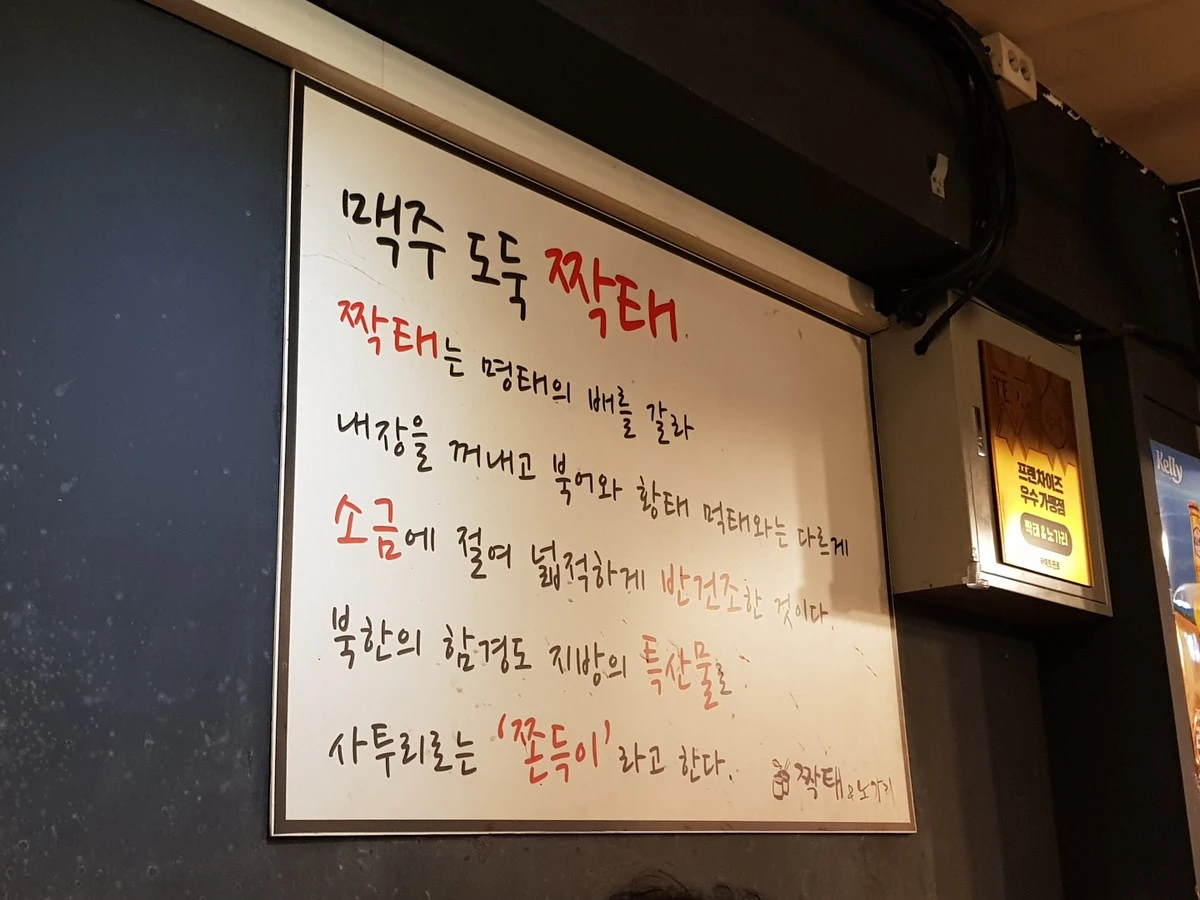 맥주 도둑 짝태
짝태는 명태의 배를 갈라
내장을 꺼내고 북어와 황태 먹태와는 다르게
소금에 절여 넓적하게 반건조한 것이다.
북한의 함경도 지방의 특산물로
사투리로는 '쫀득이'라고 한다.
짝태&노가리
프랜차이즈
우수가맹점
짝태&노가리
Kelly